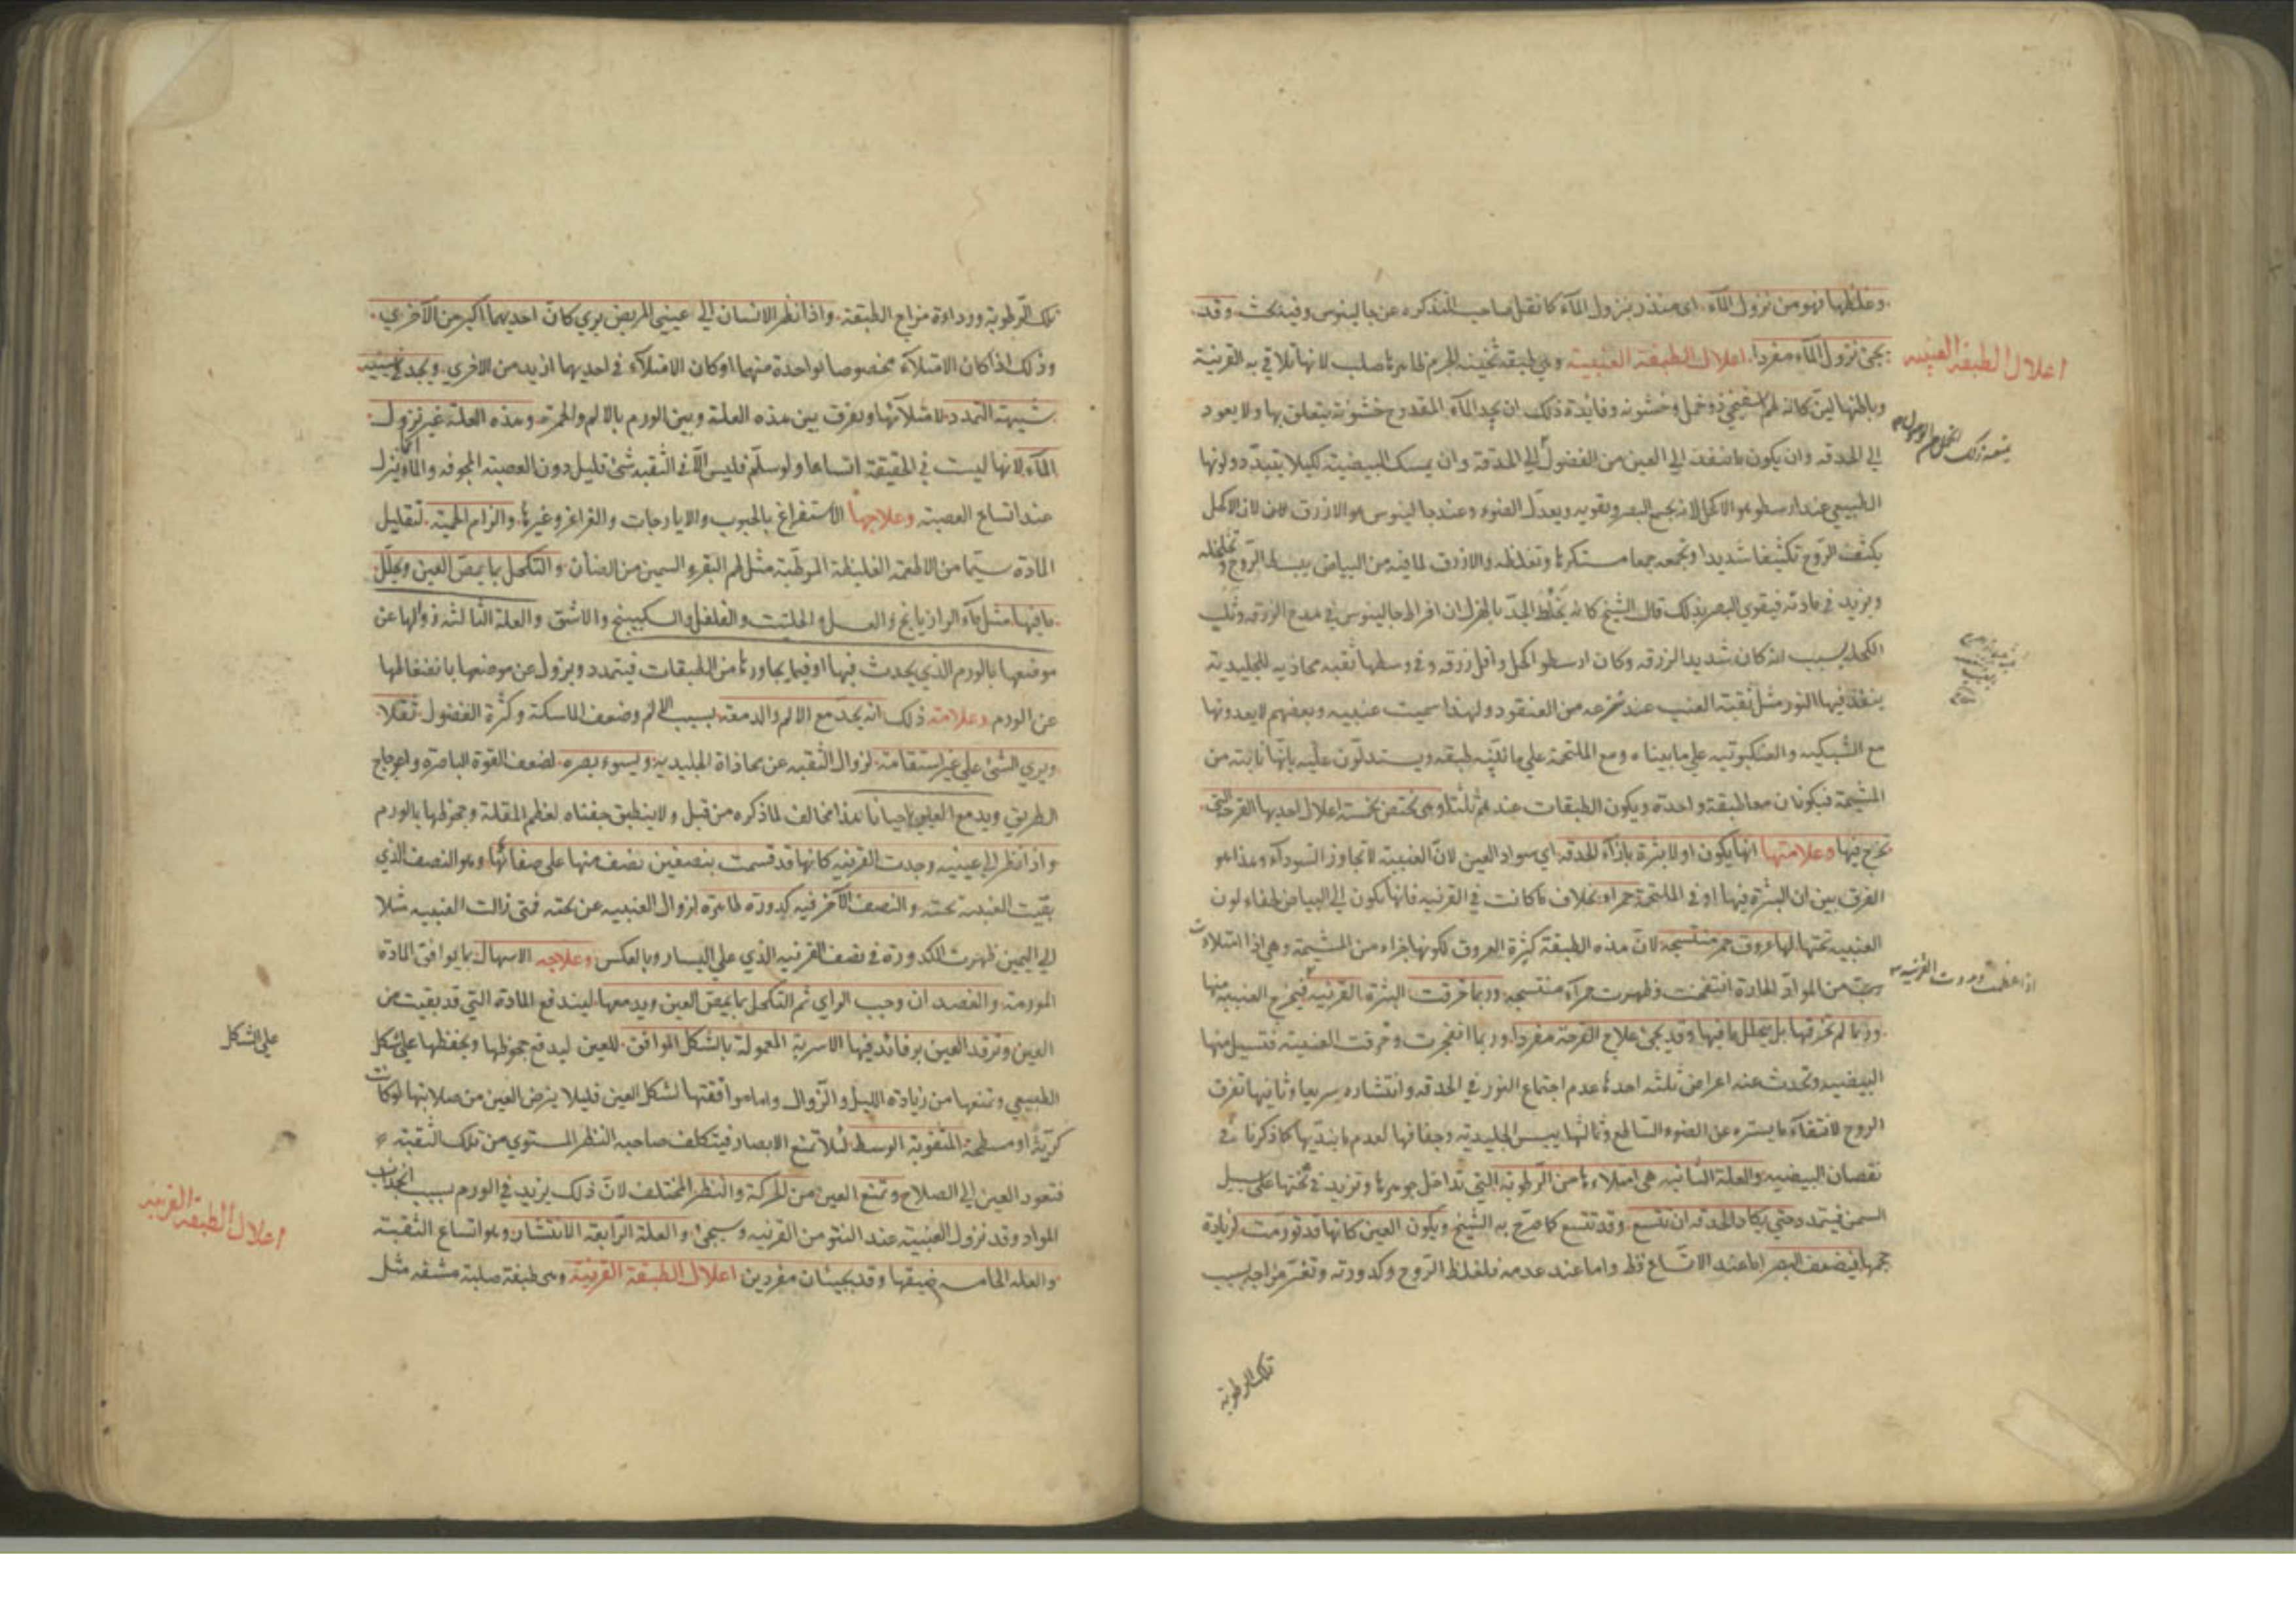 وغلظها فهو من نزول المآء. اى منذر بنزول المآء كما نقل صاحب التذكره عن جالينوس وفيه بحث. وقد
يجئ نزول المآء مفردا. اعلال الطبقة العنبية وهي طبقة ثخينة الجرم ظاهرها صلب لانها تلاقي به القرنية
اعلال الطبقة العنبيه
وباطنها لين كانه لحم اسفنجي ذو خمل وخشونه وفايدة ذلك ان يجد المآء المقدوح خشونة يتعلق بها ولا يعود
الي الحدقه وان يكون ما ينفذ الي العين من الفضول الي الحدقة وان يمسك البيضية لكيلا يتبدد ولونها
الطبيعي عند ارسطو هو الاكحل لانه يجمع البصر ويقويه ويعدل الضوء وعند جالينوس هو الازرق لان الاكحل
يكثف الروح تكثيفا شديدا وتجمعه جمعا مستكرها وتغلظه والازرق لما فيه من البياض يبسط الروح
ويزيد في مادته فيقوي البصر بذلك قال الشيخ كانه يخلط الجد بالهزل ان افراط جالينوس في مدح الزرقه وثلب
الكحله بسبب انه كان شديد الزرقه وكان ارسطو اكحل واقل زرقه وفي وسطها ثقبه محاذيه للجليدية
ينفذ فيها النور مثل ثقبة العنب عند نزعه من العنقود ولهذا سميت عنبيه وبعضهم لا يعدونها
مع الشبكيه والعنكبوتيه علي ما بيناه ومع الملتحمة علي ما طبقه ويستدلون عليه بانها نابتة من
المشيمة فيكونان معا طبقة واحدة ويكون الطبقات عندهم ثلثا وهى تختص بخمسة اعلال احديها القرحة التى
تخرج فيها وعلامتها انها يكون اولا بثرة بازآء الحدقه اي سواد العين لان العنبية لا تجاوز السوداء وهذا هو
الفرق بين ان البثرة فيها او في الملتحمة حمراء بخلاف ما كانت في القرنيه فانها تكون الي البياض لخفاء لون
العنبيه تحتها لها عروق حمر منتسجة لان هذه الطبقة كثيرة العروق لكونها اجزاء من المشيمة وهي اذا امتلاءت
من المواد الحادة انتفخت وظهرت حمرآء منتسجة وربما خرقت البثرة القرنيه فيخرج العنبيه منها
وربما لم تخرقها بل يتحلل ما فيها وقد يجئ علاج القرحة مفردا. وربما انفجرت وخرقت العنبية فتسيل منها
البيضيه وتحدث عنه اعراض ثلثه احدها عدم اجتماع النور في الحدقه وانتشاره سريعا وثانيها تفرق
الروح لانتفآء ما يستره عن الضوء الساطع وثالثها يبس الجليدية وجفافها لعدم ما ينديها كما ذكرنا في
نقصان البيضيه والعلة الثانيه هي امتلاءها من الرطوبة التي تداخل جوهرها وتزيد في ثخنها على سبيل
السمن فيتمدد حتي يكاد الحدقه ان تتسع. وقد تتسع كما صرح به الشيخ ويكون العين كانها قد تورمت لزيادة
حجمها فيضعف البصر اما عند الاتساع فظ واما عند عدمه فلغلظ الروح وكدورته وتغير مزاجه بسبب
تلك الرطوبة
تلك الرطوبة ورداءة مزاج الطبقة. واذا نظر الانسان الى عيني المريض يري كان احديهما اكبر من الآخري.
وذلك اذا كان الامتلآء مخصوصا بواحدة منهما او كان الامتلآء في احديهما ازيد من الاخري. ويجد في عينيه
شبيه التمدد لامتلآئها ويفرق بين هذه العلة وبين الورم بالالم والحمرة. وهذه العلة غير نزول
المآء لانها ليست في الحقيقة اتساعا ولو سلم فليس الا في الثقبه شئ قليل دون العصبة المجوفه والمآء ينزل
عند اتساع العصبة وعلاجها الاستفراغ بالحبوب والايارجات والغراغر وغيرها. والزام الحمية. لتقليل
المادة سيما من الاطعمة الغليظة المرطبة مثل لحم البقر والسمين من الضان والتكحل بما يمص العين ويحلل
ما فيها. مثل مآء الرازيانج والعسل والحلتيت والفلفل والسكبينج والاشق والعلة الثالثة زوالها عن
موضعها بالورم الذي يحدث فيها او فيما يجاورها من الطبقات فيتمدد ويزول عن موضعها بانضغاطها
عن الورم وعلامة ذلك انه يجد مع الالم والدمعه بسبب الالم وضعف الماسكة وكثرة الفضول. ثقلا
ويري الشئ علي غير استقامة. لزوال الثقبه عن محاذاة الجليديه ويسوء بصره. لضعف القوة الباصرة واعوجاج
الطريق ويدمع العين احيانا هذا مخالف لما ذكره من قبل ولا ينطبق جفناه لعظم المقلة وجحوظها بالورم
واذا نظر الي عينيه وجدت القرنيه كانها قد قسمت بنصفين نصف منها على صفائها وهو النصف الذي
بقيت العنبية تحته والنصف الآخر فيه كدورة ظاهرة لزوال العنبيه عن تحته فمتى زالت العنبيه مثلا
الي اليمين ظهرت الكدورة في نصف القرنيه الذي علي اليسار وبالعكس وعلاجه الاسهال بما يوافق المادة
المورمة والفصد ان وجب الراي ثم التكحل بما يمص العين ويدمعها. ليندفع المادة التي قد بقيت من
العين وترفد العين برفائد فيها الاسربة المعمولة بالشكل الموافق. للعين ليدفع جحوظها ويحفظها علي شكل
علي الشكل
الطبيعي وتمنعها من زيادة الميل والزوال واما موافقتها لشكل العين فليلا يرض العين من صلابتها لو كانت
كرية او مسطحة المثقوبة الوسط لئلا تمنع الابصار فيتكلف صاحبه النظر المستوي من تلك الثقبة
فتعود العين الي الصلاح وتمنع العين من الحركة والنظر المختلف لان ذلك يزيد في الورم بسبب انجذاب
المواد وقد تزول العنبية عند النتو من القرنيه وسيجئ والعلة الرابعه الانتشار وهو اتساع الثقبة
اعلال الطبقة القرنيه
والعله الخامسه ضيقها وقد يجيئان مفردين اعلال الطبقة القرنية وهى طبقة صلبة مشفه مثل